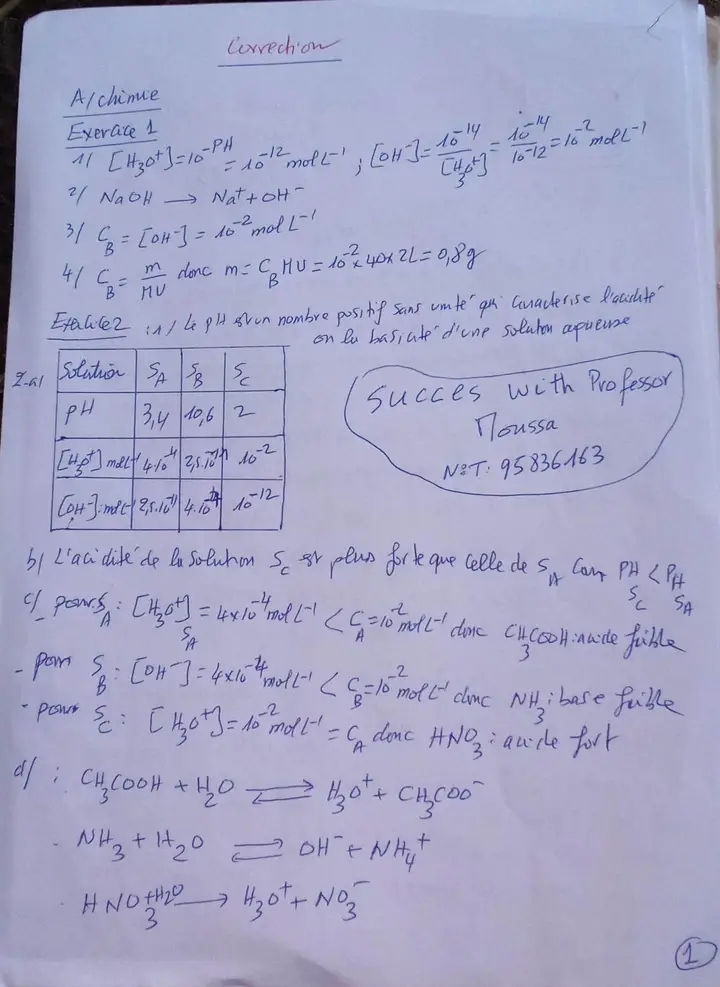 Correction
A/chimie
Exercice 1
1/ [H₃O⁺]=10⁻ᴾᴴ = 10⁻¹² mol L⁻¹ ; [OH⁻]= 10⁻¹⁴/[H₃O⁺] = 10⁻¹⁴/10⁻¹² = 10⁻² mol L⁻¹
2/ NaOH → Na⁺ + OH⁻
3/ C_B = [OH⁻] = 10⁻² mol L⁻¹
4/ C_B = m/MV donc m = C_B MV = 10⁻² x 40 x 2L = 0,8g
Exercice 2 : 1/ Le pH est un nombre positif sans unité qui caracterise l'acidité
ou la basicité d'une solution aqueuse
2-a/ Solution S_A S_B S_C
pH 3,4 10,6 2
[H₃O⁺] mol L⁻¹ 4.10⁻⁴ 2,5.10⁻¹¹ 10⁻²
[OH⁻]: mol L⁻¹ 2,5.10⁻¹¹ 4.10⁻⁴ 10⁻¹²
Succes with Professor
Moussa
N°T: 95836163
b/ L'acidité de la solution S_C est plus forte que celle de S_A car PH S_C < PH S_A
c/ - pour S_A : [H₃O⁺]S_A = 4x10⁻⁴ mol L⁻¹ < C_A = 10⁻² mol L⁻¹ donc CH₃COOH : acide faible
- pour S_B : [OH⁻] = 4x10⁻⁴ mol L⁻¹ < C_B = 10⁻² mol L⁻¹ donc NH₃ : base faible
- pour S_C : [H₃O⁺] = 10⁻² mol L⁻¹ = C_A donc HNO₃ : acide fort
d/ : CH₃COOH + H₂O ⇌ H₃O⁺ + CH₃COO⁻
. NH₃ + H₂O ⇌ OH⁻ + NH₄⁺
. HNO₃ + H₂O → H₃O⁺ + NO₃⁻
1